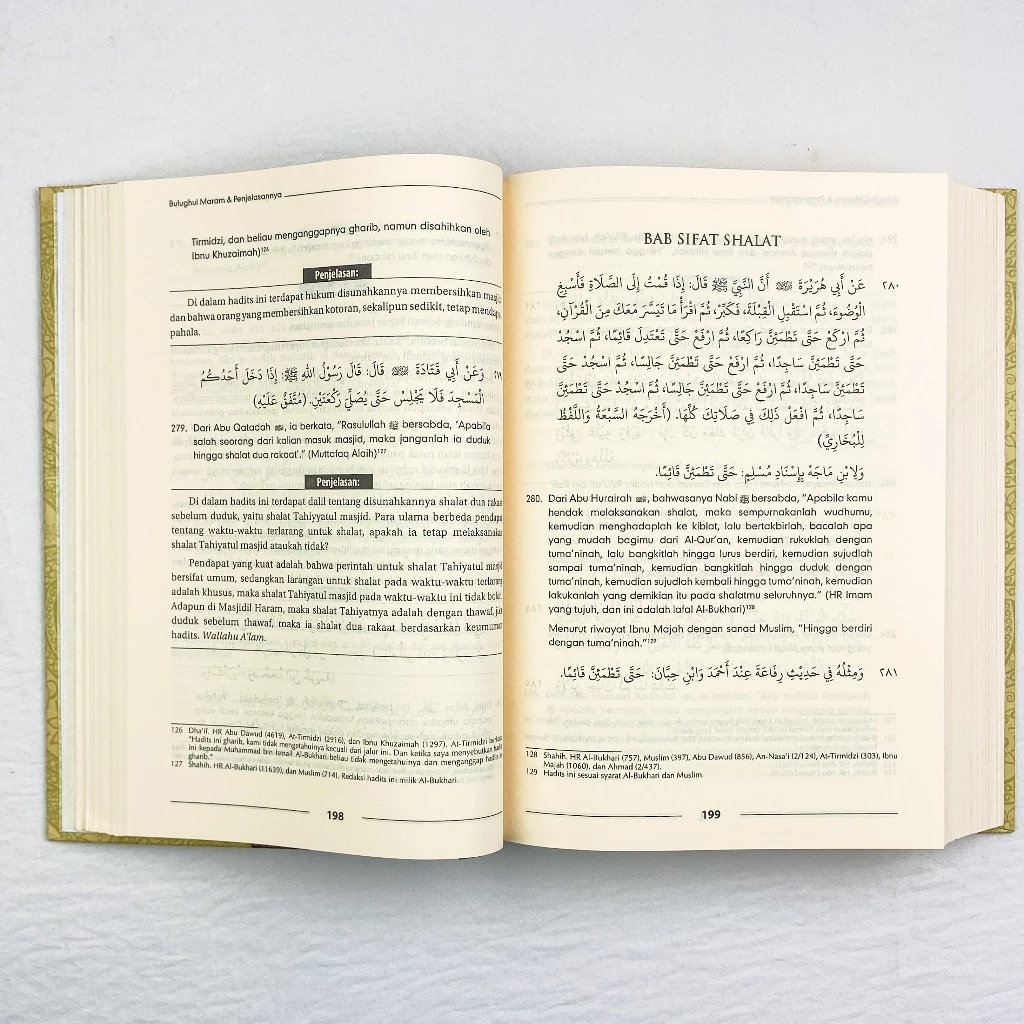 Bulughul Maram & Penjelasannya
Tirmidzi, dan beliau menganggapnya gharib, namun disahihkan oleh
Ibnu Khuzaimah)¹²⁶
Penjelasan:
Di dalam hadits ini terdapat hukum disunahkannya membersihkan masjid
dan bahwa orang yang membersihkan kotoran, sekalipun sedikit, tetap mendapat
pahala.
وَعَنْ أَبِي قَتَادَةَ ﷺ قَالَ: قَالَ رَسُوْلُ اللهِ ﷺ: إِذَا دَخَلَ أَحَدُكُمُ
الْمَسْجِدَ فَلَا يَجْلِسْ حَتَّى يُصَلِّيَ رَكْعَتَيْنِ. (مُتَّفَقٌ عَلَيْهِ)
279. Dari Abu Qatadah, ia berkata, "Rasulullah ﷺ bersabda, 'Apabila
salah seorang dari kalian masuk masjid, maka janganlah ia duduk
hingga shalat dua rakaat'." (Muttafaq Alaih)¹²⁷
Penjelasan:
Di dalam hadits ini terdapat dalil tentang disunahkannya shalat dua rakaat
sebelum duduk, yaitu shalat Tahiyyatul masjid. Para ulama berbeda pendapat
tentang waktu-waktu terlarang untuk shalat, apakah ia tetap melaksanakan
shalat Tahiyatul masjid ataukah tidak?
Pendapat yang kuat adalah bahwa perintah untuk shalat Tahiyatul masjid
bersifat umum, sedangkan larangan untuk shalat pada waktu-waktu terlarang
adalah khusus, maka shalat Tahiyatul masjid pada waktu-waktu ini tidak boleh.
Adapun di Masjidil Haram, maka shalat Tahiyatnya adalah dengan thawaf, jika
duduk sebelum thawaf, maka ia shalat dua rakaat berdasarkan keumuman
hadits. Wallahu A'lam.
126 Dha'if. HR Abu Dawud (4619), At-Tirmidzi (2916), dan Ibnu Khuzaimah (1297). At-Tirmidzi berkata
"Hadits ini gharib, kami tidak mengetahuinya kecuali dari jalur ini. Dan ketika saya menyebutkan hadits
ini kepada Muhammad bin Ismail Al-Bukhari, beliau tidak mengetahuinya dan menganggap hadits ini
gharib."
127 Shahih. HR Al-Bukhari (11639), dan Muslim (714). Redaksi hadits ini milik Al-Bukhari.
198
BAB SIFAT SHALAT
٢٨٠ عَنْ أَبِي هُرَيْرَةَ أَنَّ النَّبِيَّ ﷺ قَالَ: إِذَا قُمْتَ إِلَى الصَّلَاةِ فَأَسْبِغِ
الْوُضُوءَ، ثُمَّ اسْتَقْبِلِ الْقِبْلَةَ، فَكَبِّرْ، ثُمَّ اقْرَأْ مَا تَيَسَّرَ مَعَكَ مِنَ الْقُرْآنِ،
ثُمَّ ارْكَعْ حَتَّى تَطْمَئِنَّ رَاكِعًا، ثُمَّ ارْفَعْ حَتَّى تَعْتَدِلَ قَائِمًا، ثُمَّ اسْجُدْ
حَتَّى تَطْمَئِنَّ سَاجِدًا، ثُمَّ ارْفَعْ حَتَّى تَطْمَئِنَّ جَالِسًا، ثُمَّ اسْجُدْ حَتَّى
تَطْمَئِنَّ سَاجِدًا، ثُمَّ ارْفَعْ حَتَّى تَطْمَئِنَّ جَالِسًا، ثُمَّ اسْجُدْ حَتَّى تَطْمَئِنَّ
سَاجِدًا، ثُمَّ افْعَلْ ذَلِكَ فِي صَلَاتِكَ كُلِّهَا. (أَخْرَجَهُ السَّبْعَةُ وَاللَّفْظُ
لِلْبُخَارِيِّ)
وَلِابْنِ مَاجَهْ بِإِسْنَادِ مُسْلِمٍ: حَتَّى تَطْمَئِنَّ قَائِمًا.
280. Dari Abu Hurairah, bahwasanya Nabi ﷺ bersabda, "Apabila kamu
hendak melaksanakan shalat, maka sempurnakanlah wudhumu,
kemudian menghadaplah ke kiblat, lalu bertakbirlah, bacalah apa
yang mudah bagimu dari Al-Qur'an, kemudian rukuklah dengan
tuma'ninah, lalu bangkitlah hingga lurus berdiri, kemudian sujudlah
sampai tuma'ninah, kemudian bangkitlah hingga duduk dengan
tuma'ninah, kemudian sujudlah kembali hingga tuma'ninah, kemudian
lakukanlah yang demikian itu pada shalatmu seluruhnya." (HR Imam
yang tujuh, dan ini adalah lafal Al-Bukhari)¹²⁸
Menurut riwayat Ibnu Majah dengan sanad Muslim, "Hingga berdiri
dengan tuma'ninah."¹²⁹
٢٨١ وَمِثْلُهُ فِي حَدِيْثِ رِفَاعَةَ عِنْدَ أَحْمَدَ وَابْنِ حِبَّانَ: حَتَّى تَطْمَئِنَّ قَائِمًا.
128 Shahih. HR Al-Bukhari (757), Muslim (397), Abu Dawud (856), An-Nasa'i (2/124), At-Tirmidzi (303), Ibnu
Majah (1060), dan Ahmad (2/437).
129 Hadits ini sesuai syarat Al-Bukhari dan Muslim.
199